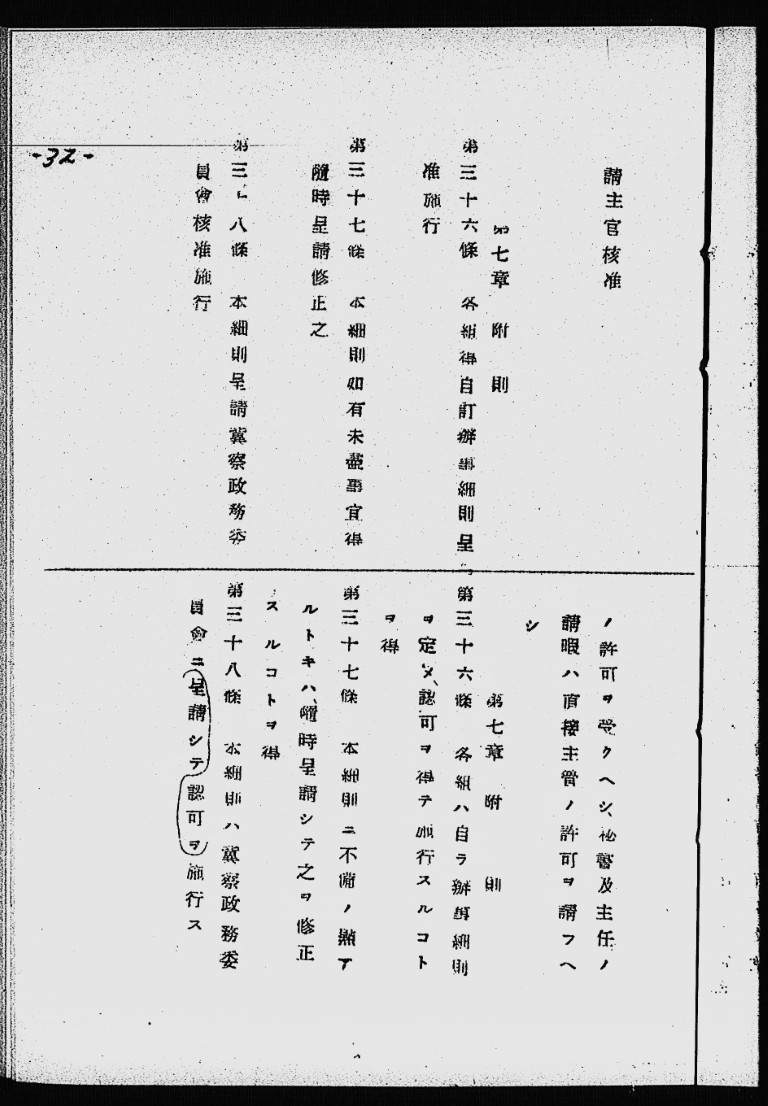 請主官核准
第七章 附則
第三十六條 各組得自訂辦事細則呈請
准施行
第三十七條 本細則如有未盡事宜得
隨時呈請修正之
第三十八條 本細則呈請冀察政務委
員會核准施行
-32-
ノ許可ヲ受クヘシ、祕書及主任ノ
請暇ハ直接主管ノ許可ヲ請フヘ
シ
第七章 附則
第三十六條 各組ハ自ラ辦事細則
ヲ定メ、認可ヲ得テ施行スルコト
ヲ得
第三十七條 本細則ニ不備ノ點ア
ルトキハ、隨時呈請シテ之ヲ修正
スルコトヲ得
第三十八條 本細則ハ冀察政務委
員會ニ呈請シテ認可ヲ施行ス